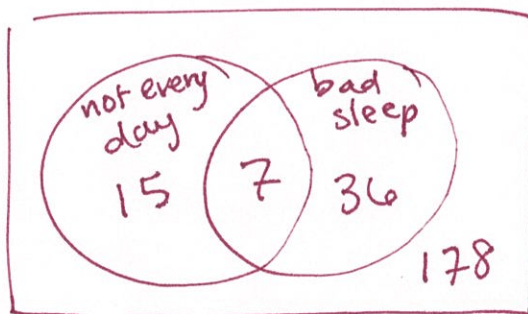 not every
day
bad
sleep
15
7
36
178